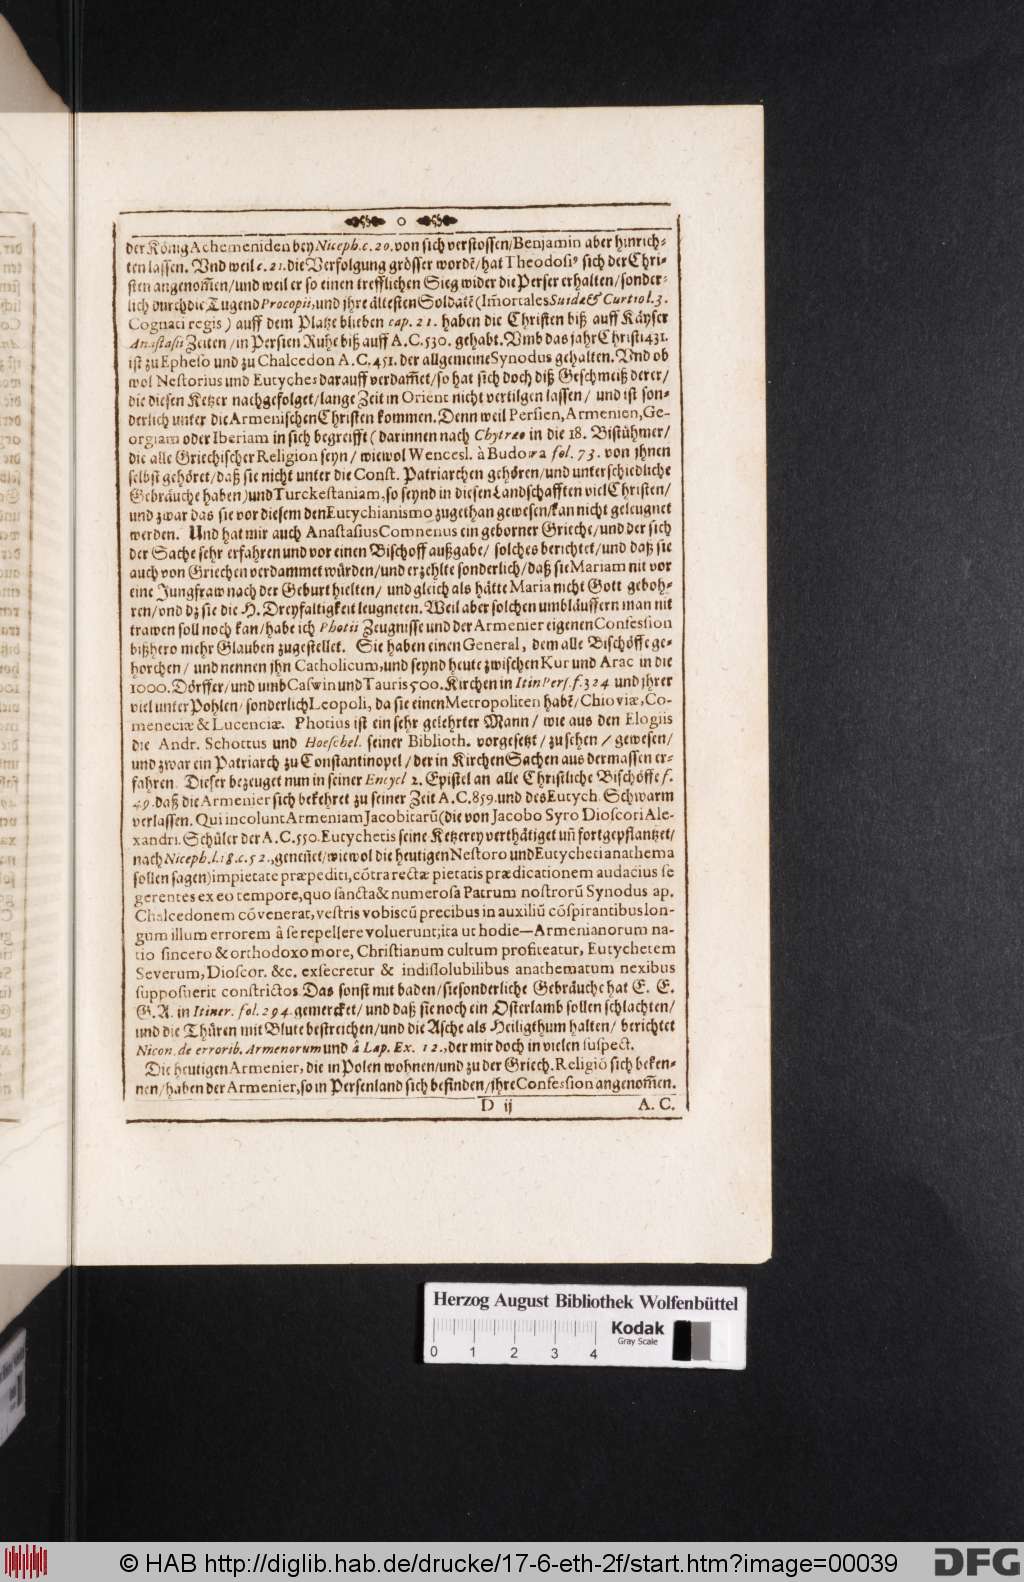 der König Achemeniden bey Niceph. c. 20. von sich verstossen/Benjamin aber hinrich-
ten lassen. Vnd weil c. 21. die Verfolgung grösser wordē/hat Theodosiꝰ sich der Chri-
sten angenom̄en/und weil er so einen trefflichen Sieg wider die Perser erhalten/sonder-
lich durch die Tugend Procopii, und jhre ältesten Soldatē (Im̄ortales Suidæ & Curtio l. 3.
Cognati regis) auff dem Platze blieben cap. 21. haben die Christen biß auff Käyser
Anastasii Zeiten/in Persien Ruhe biß auff A.C. 530. gehabt. Vmb das jahr Christi 431.
ist zu Epheso und zu Chalcedon A.C. 451. der allgemeine Synodus gehalten. Vnd ob
wol Nestorius und Eutyches darauff verdam̄et/so hat sich doch diß Geschmeiß derer/
die diesen Ketzer nachgefolget/lange Zeit in Orient nicht vertilgen lassen/ und ist son-
derlich unter die Armenischen Christen kommen. Denn weil Persien, Armenien, Ge-
orgiam oder Iberiam in sich begreifft (darinnen nach Chytræo in die 18. Bistühmer/
die alle Griechischer Religion seyn/ wiewol Wencesl. à Budowa fol. 73. von jhnen
selbst gehöret/daß sie nicht unter die Const. Patriarchen gehören/und unterschiedliche
Gebräuche haben) und Turckestaniam, so seynd in diesen Landschafften viel Christen/
und zwar das sie vor diesem den Eutychianismo zugethan gewesen/kan nicht geleugnet
werden. Und hat mir auch Anastasius Comnenus ein geborner Grieche/und der sich
der Sache sehr erfahren und vor einen Bischoff außgabe/ solches berichtet/und daß sie
auch von Griechen verdammet würden/und erzehlte sonderlich/daß sie Mariam nit vor
eine Jungfraw nach der Geburt hielten/ und gleich als hätte Maria nicht Gott geboh-
ren/vnd dz sie die H. Dreyfaltigkeit leugneten. Weil aber solchen umbläuffern man nit
trawen soll noch kan/habe ich Photii Zeugnisse und der Armenier eigenen Confession
bißhero mehr Glauben zugestellet. Sie haben einen General, dem alle Bischöffe ge-
horchen/ und nennen jhn Catholicum, und seynd heute zwischen Kur und Arac in die
1000. Dörffer/und umb Caswin und Tauris 500. Kirchen in Itin Pers. f. 324 und jhrer
viel unter Pohlen/sonderlich Leopoli, da sie einen Metropoliten habē/Chioviæ, Co-
meneciæ & Lucenciæ. Photius ist ein sehr gelehrter Mann/ wie aus den Elogiis
die Andr. Schottus und Hoeschel. seiner Biblioth. vorgesetzt/zusehen/ gewesen/
und zwar ein Patriarch zu Constantinopel/der in Kirchen Sachen aus dermassen er-
fahren. Dieser bezeuget nun in seiner Encycl 2. Epistel an alle Christliche Bischöffe f.
49. daß die Armenier sich bekehret zu seiner Zeit A.C. 859. und des Eutych. Schwarm
verlassen. Qui incolunt Armeniam Jacobitarū (die von Jacobo Syro Dioscori Ale-
xandri. Schüler der A.C. 550. Eutychetis seine Ketzerey verthätiget uñ fortgepflantzet/
nach Niceph. l. 18. c. 52., geneñet/wiewol die heutigen Nestoro und Eutycheti anathema
sollen sagen) impietate præpediti, cōtra rectæ pietatis prædicationem audacius se
gerentes ex eo tempore, quo sancta & numerosa Patrum nostrorū Synodus ap.
Chalcedonem cōvenerat, vestris vobiscū precibus in auxiliū cōspirantibus lon-
gum illum errorem â se repellere voluerunt; ita ut hodie—Armenianorum na-
tio sincero & orthodoxo more, Christianum cultum profiteatur, Eutychetem
Severum, Dioscor. &c. exsecretur & indissolubilibus anathematum nexibus
supposuerit constrictos. Das sonst mit baden/sie sonderliche Gebräuche hat E. E.
G. A. in Itiner. fol. 294. gemercket/ und daß sie noch ein Osterlamb sollen schlachten/
und die Thüren mit Blute bestreichen/und die Asche als Heiligthum halten/ berichtet
Nicon. de errorib. Armenorum und â Lap. Ex. 12., der mir doch in vielen suspect.
Die heutigen Armenier, die in Polen wohnen/und zu der Griech. Religiō sich beken-
nen/haben der Armenier, so in Persenland sich befinden/jhre Confession angenom̄en.
D ij A. C.
Herzog August Bibliothek Wolfenbüttel
Kodak
Gray Scale
0 1 2 3 4
© HAB http://diglib.hab.de/drucke/17-6-eth-2f/start.htm?image=00039
DFG